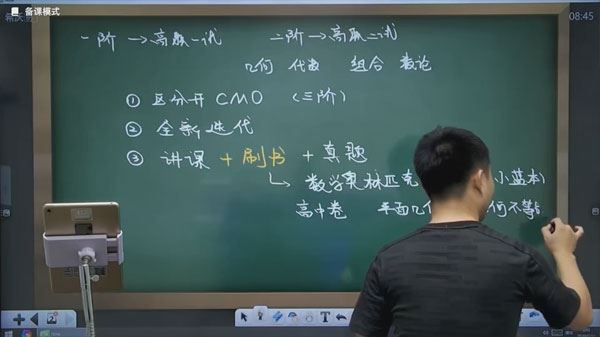 备课模式
08:45
一阶 → 高联一试 二阶 → 高联二试
几何 代数 组合 数论
① 区分开 CMO (三阶)
② 全新迭代
③ 讲课 + 刷书 + 真题
↳ 数学奥林匹克 小蓝本)
高中卷 平面几何 何不等